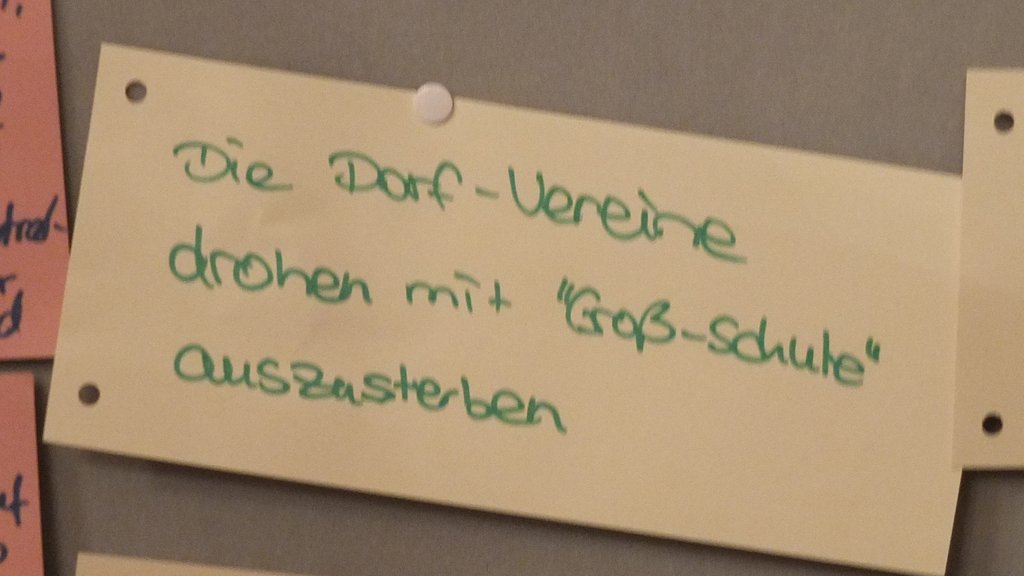 Die Dorf-Vereine
drohen mit "Groß-Schule"
auszusterben